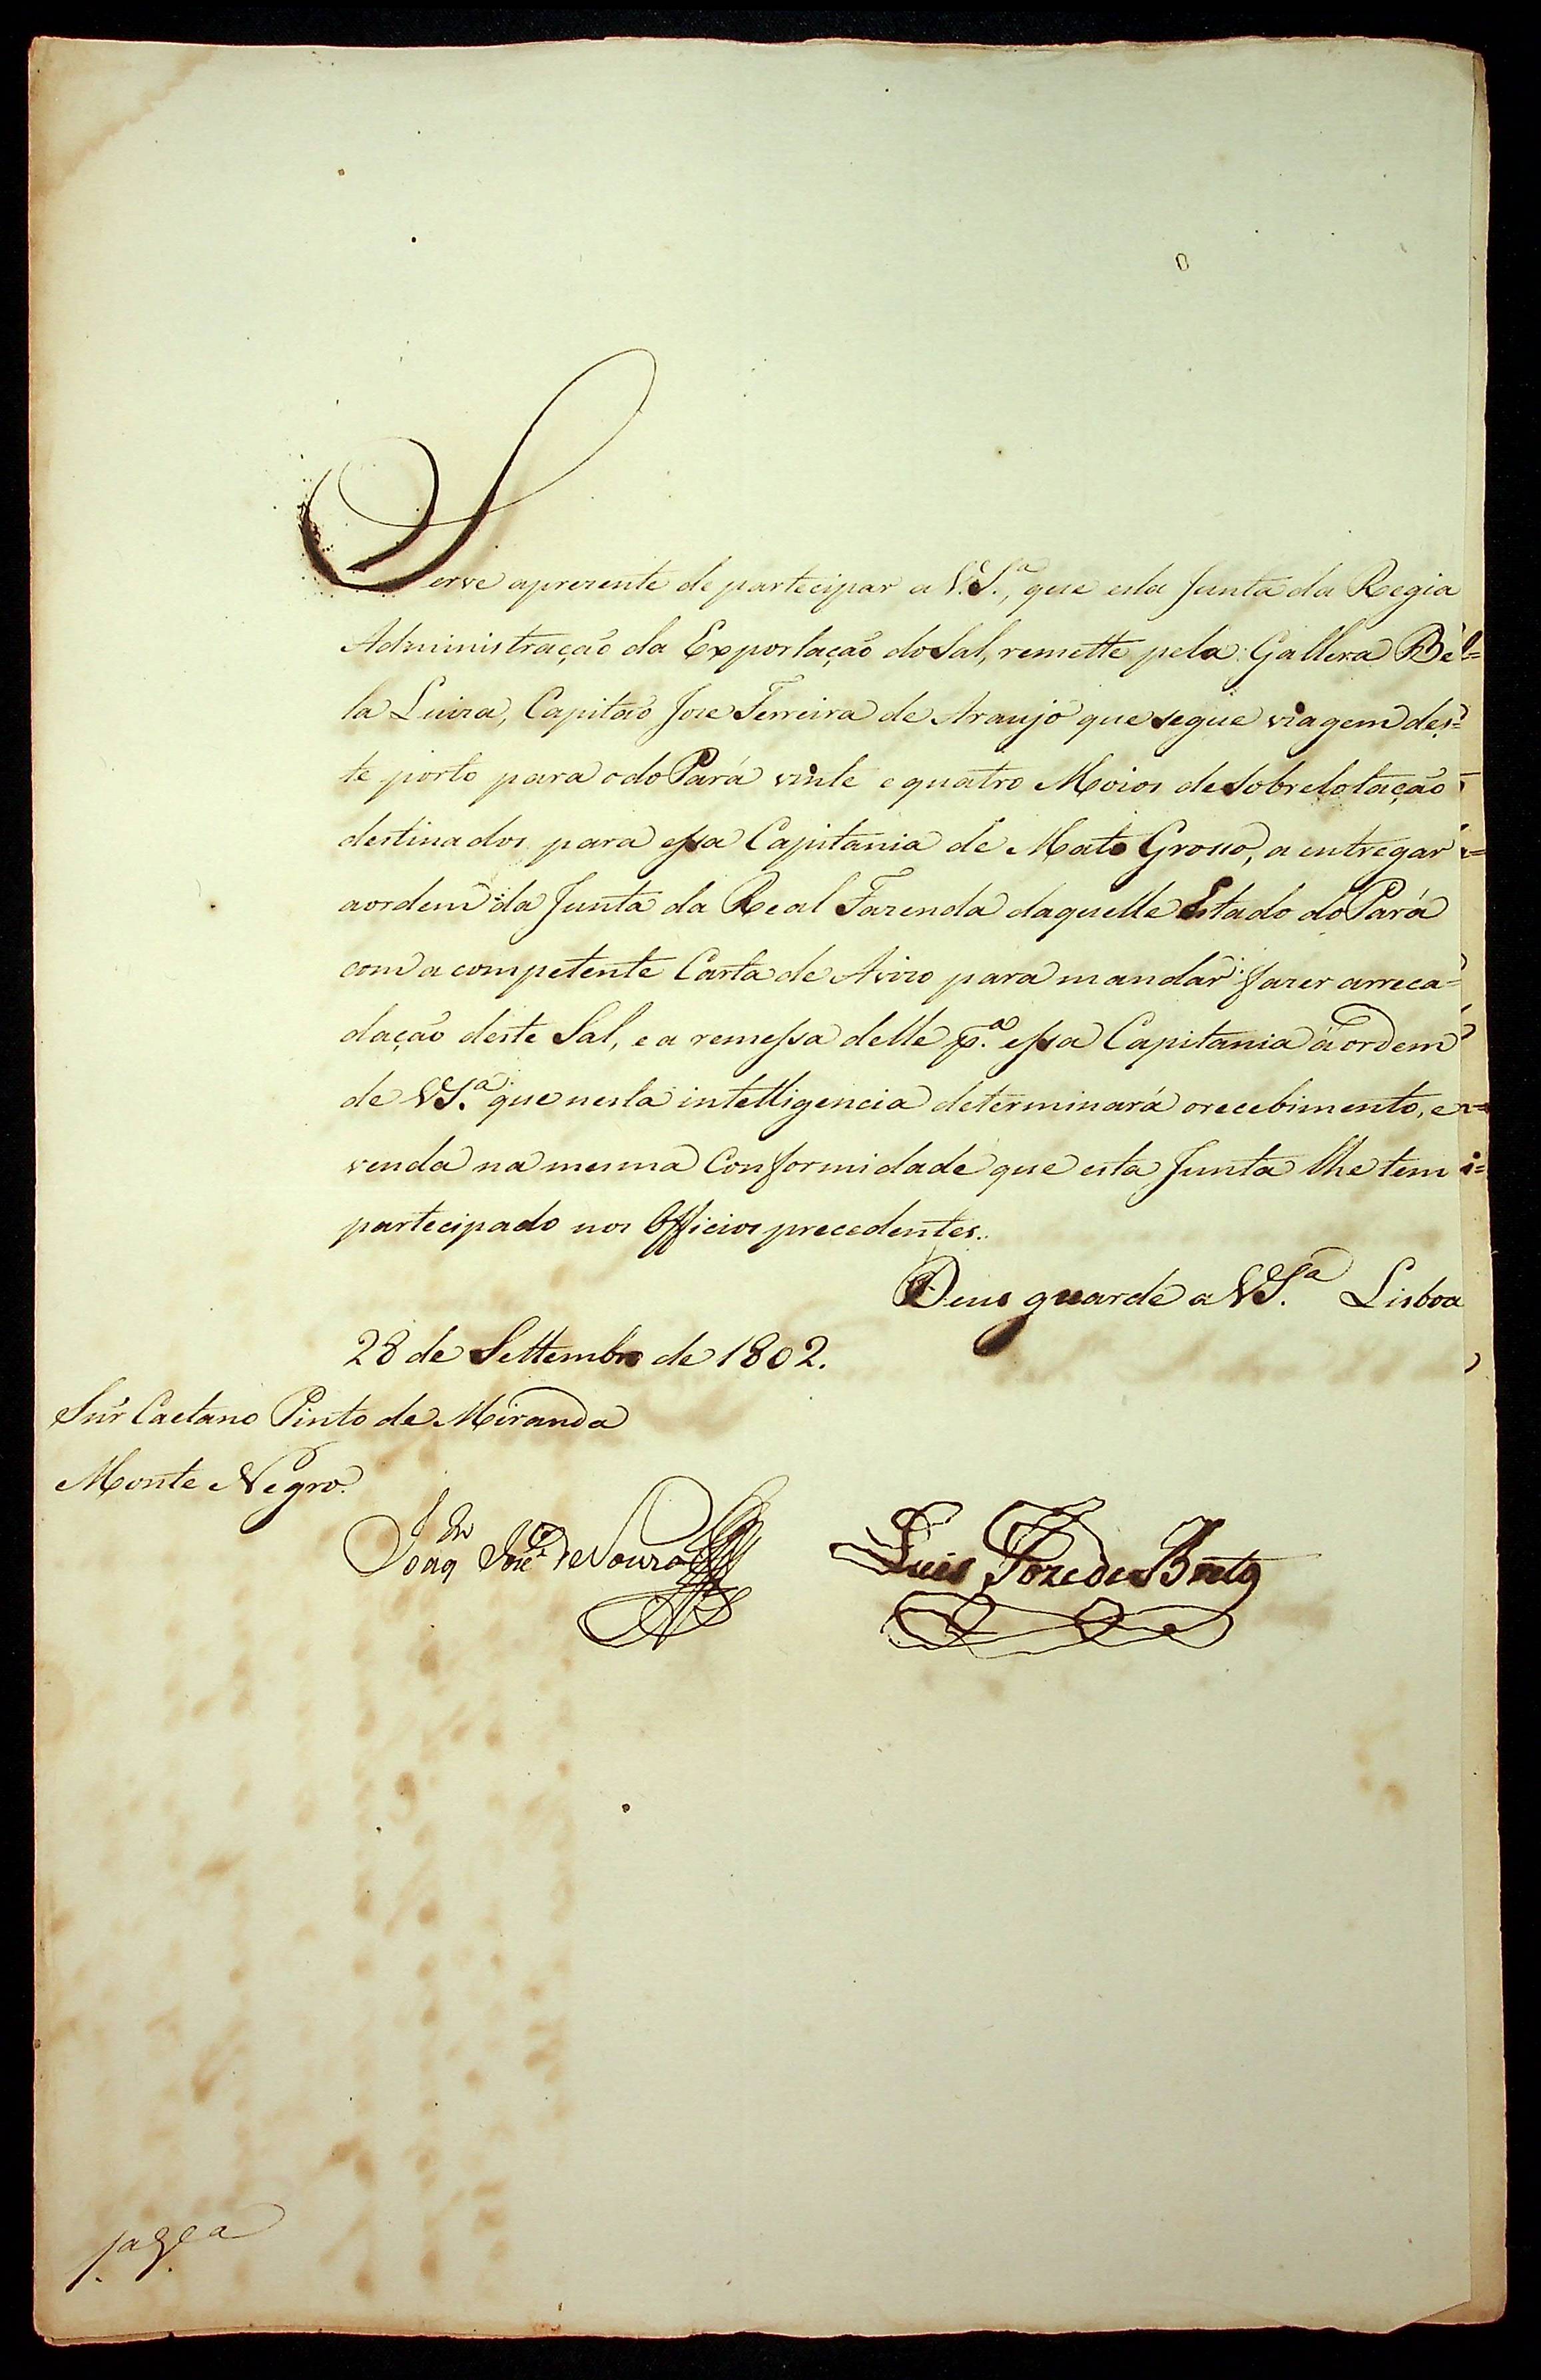 Serve aprezente de partecipar a V.S.ª, que esta Junta da Regia
Administração da Exportação do Sal, remette pela Gallera Bél=
la Luiza, Capitão Joze Ferreira de Araujo que segue viagem des=
te porto para o do Pará vinte e quatro Moios de Sobrelotação
destinados para essa Capitania de Mato Grosso, a entregar
aordem da Junta da Real Fazenda daquelle Estado do Pará
com a competente Carta de Avizo para mandar fazer arreca=
dação deste Sal, e a remessa delle p.ª essa Capitania á ordem
de VS.ª que nesta intelligencia determinará orecebimento, e
venda na mesma Conformidade que esta Junta lhe tem
partecipado nos Officios precedentes.
Deus guarde a VS.ª Lisboa
28 de Settembro de 1802.
Snr̃ Caetano Pinto de Miranda
Monte Negro.
Joaq.m José de Souza
Luis Joze de Brito
1.ª